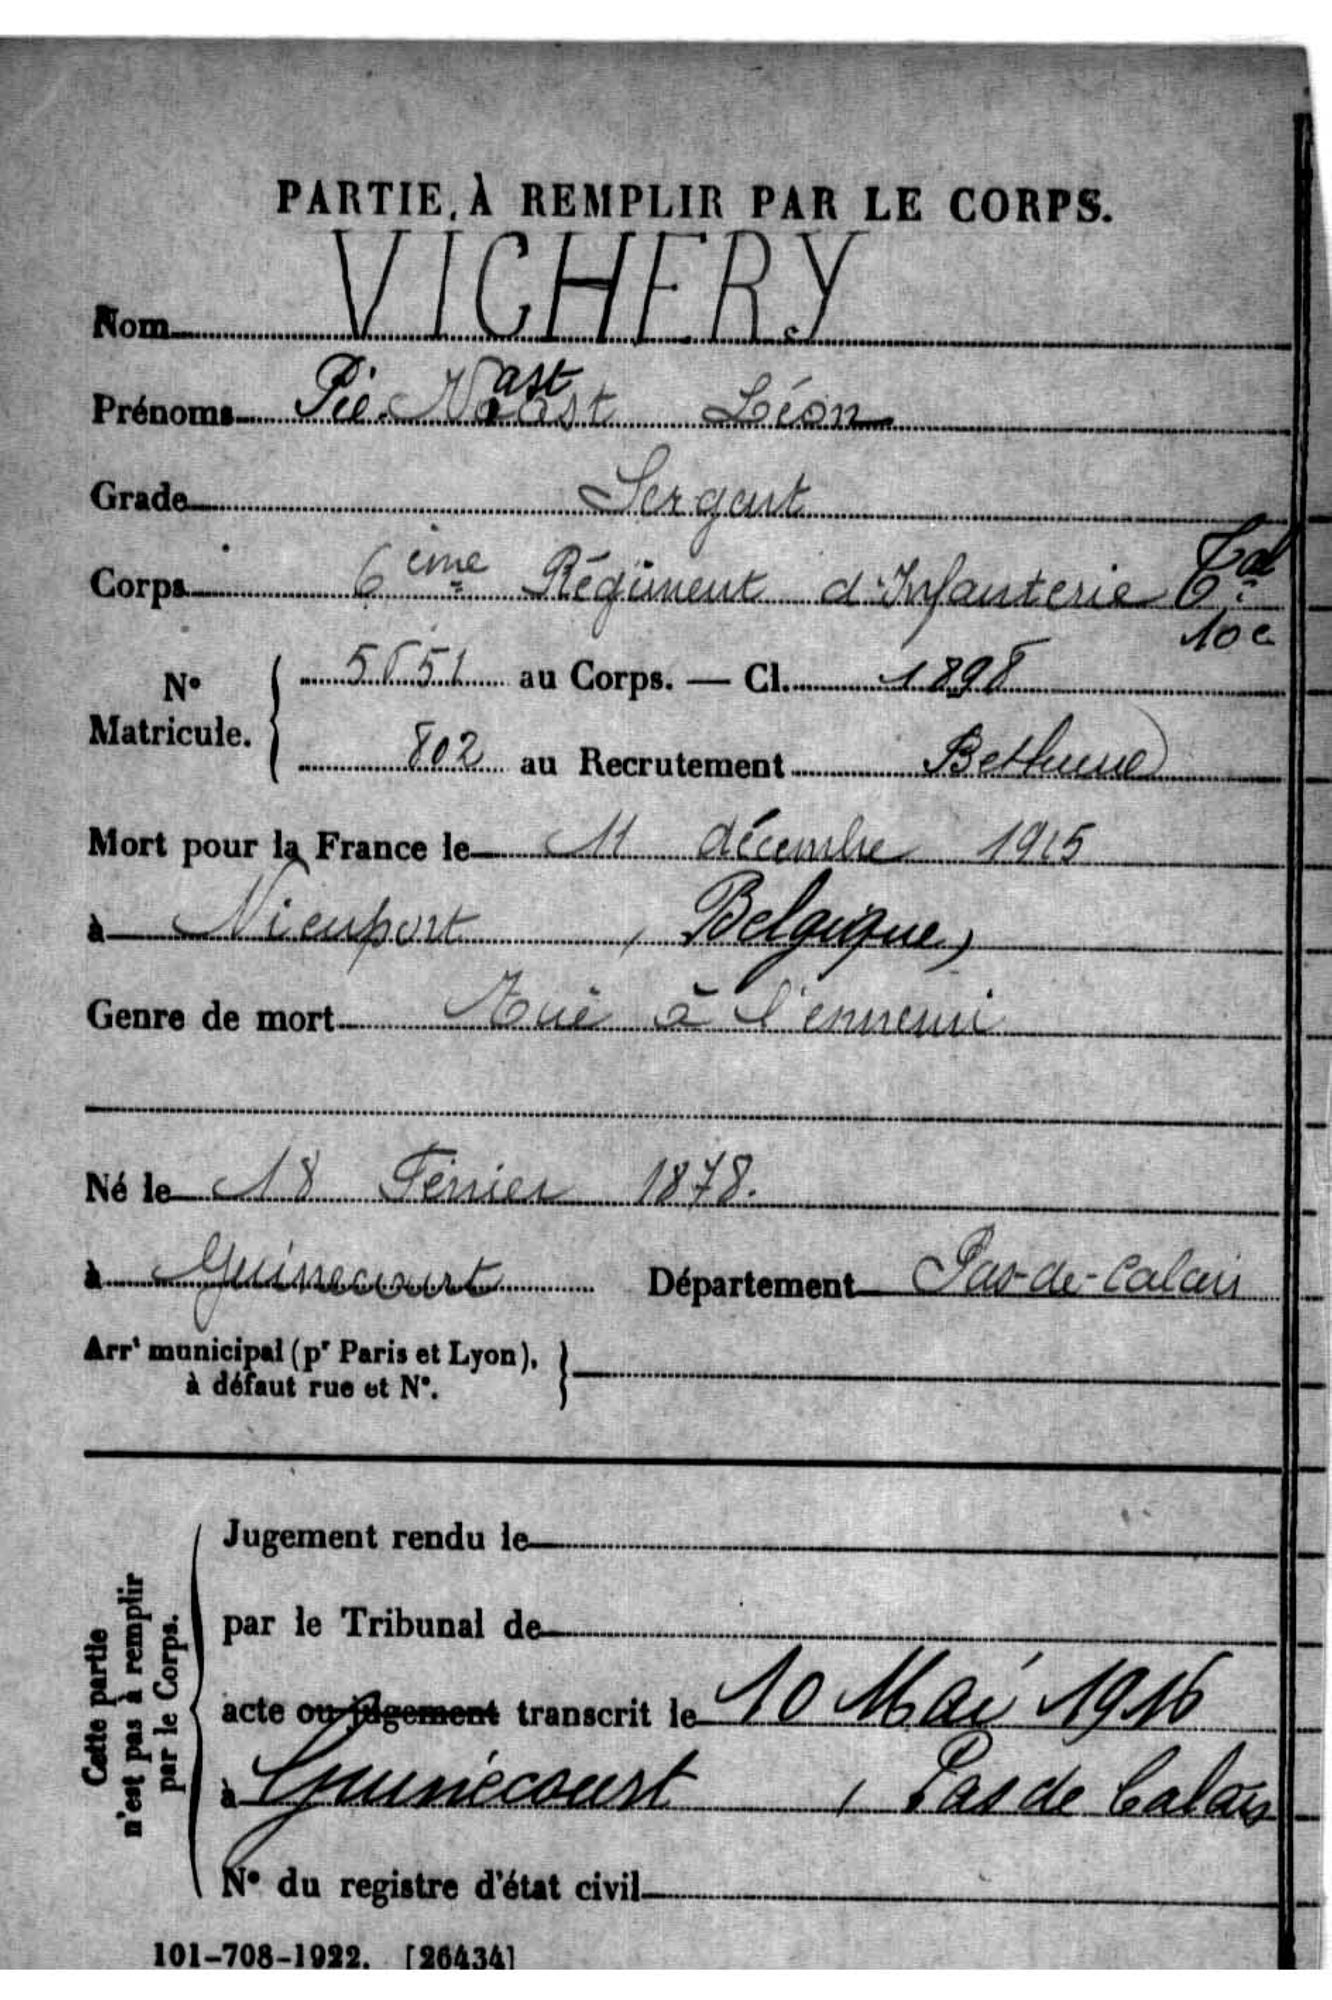 PARTIE À REMPLIR PAR LE CORPS.
Nom VICHERY
Prénoms Pie Vaast Léon
Grade Sergent
Corps 6 ème Régiment d'Infanterie Tal
10e
N° Matricule. { 5651 au Corps. — Cl. 1898
802 au Recrutement Bethune
Mort pour la France le 11 décembre 1915
à Nieuport, Belgique,
Genre de mort Tué à l'ennemi
Né le 18 Février 1878.
à Guinecourt Département Pas-de-Calais
Arrt municipal (pr Paris et Lyon),
à défaut rue et N°.
Cette partie
n'est pas à remplir
par le Corps.
Jugement rendu le
par le Tribunal de
acte ou jugement transcrit le 10 Mai 1916
à Guinécourt, Pas de Calais
N° du registre d'état civil
101-708-1922. [26434]